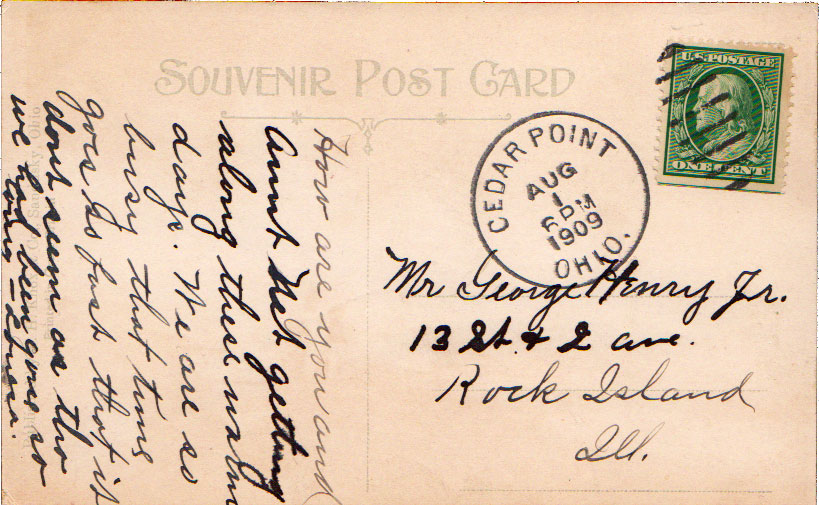 SOUVENIR POST CARD
U.S. POSTAGE
ONE CENT
CEDAR POINT
AUG
1
6 PM
1909
OHIO.
Mr George Henry Jr.
13 St. & 2 ave.
Rock Island
Ill.
How are you and
Aunt Net getting
along these warm
days. We are so
busy that time
goes so fast that it
dont seem as tho
we had been gone so
long – Louisa.
Sandusky, Ohio